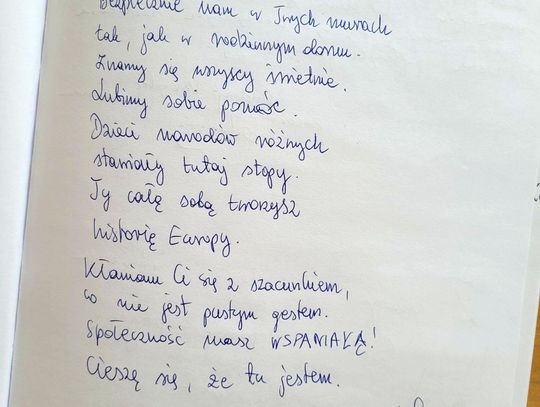 Bezpiecznie nam w Twych murach
tak, jak w rodzinnym domu.
Znamy się wszyscy świetnie.
Lubimy sobie pomóc.
Dzieci narodów różnych
stawiały tutaj stopy.
Ty całą sobą tworzysz
historię Europy.
Kłaniam Ci się z szacunkiem,
co nie jest pustym gestem.
Społeczność masz WSPANIAŁĄ!
Cieszę się, że tu jestem.